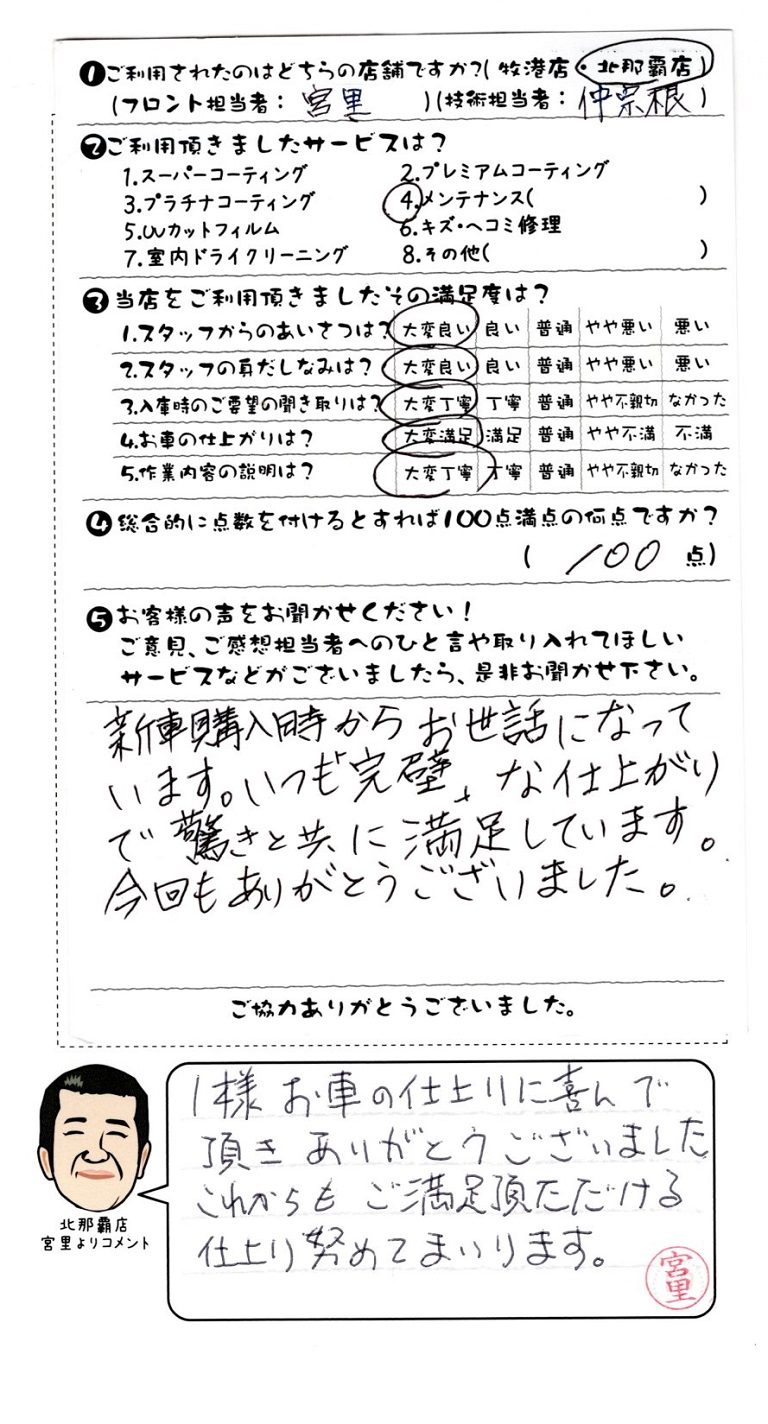 ❶ご利用されたのはどちらの店舗ですか?(牧港店・北那覇店)
(フロント担当者：宮里)(技術担当者：仲宗根)
❷ご利用頂きましたサービスは?
1.スーパーコーティング 2.プレミアムコーティング
3.プラチナコーティング 4.メンテナンス( )
5.UVカットフィルム 6.キズ・ヘコミ修理
7.室内ドライクリーニング 8.その他( )
❸当店をご利用頂きましたその満足度は?
1.スタッフからのあいさつは? 大変良い 良い 普通 やや悪い 悪い
2.スタッフの身だしなみは? 大変良い 良い 普通 やや悪い 悪い
3.入庫時のご要望の聞き取りは? 大変丁寧 丁寧 普通 やや不親切 なかった
4.お車の仕上がりは? 大変満足 満足 普通 やや不満 不満
5.作業内容の説明は? 大変丁寧 丁寧 普通 やや不親切 なかった
❹総合的に点数を付けるとすれば100点満点の何点ですか?
(100点)
❺お客様の声をお聞かせください!
ご意見、ご感想担当者へのひと言や取り入れてほしい
サービスなどがございましたら、是非お聞かせ下さい。
新車購入時からお世話になって
います。いつも"完璧"な仕上がり
で驚きと共に満足しています。
今回もありがとうございました。
ご協力ありがとうございました。
I様 お車の仕上りに喜んで
頂きありがとうございました
これからもご満足頂ただける
仕上り努めてまいります。
宮里
北那覇店
宮里よりコメント